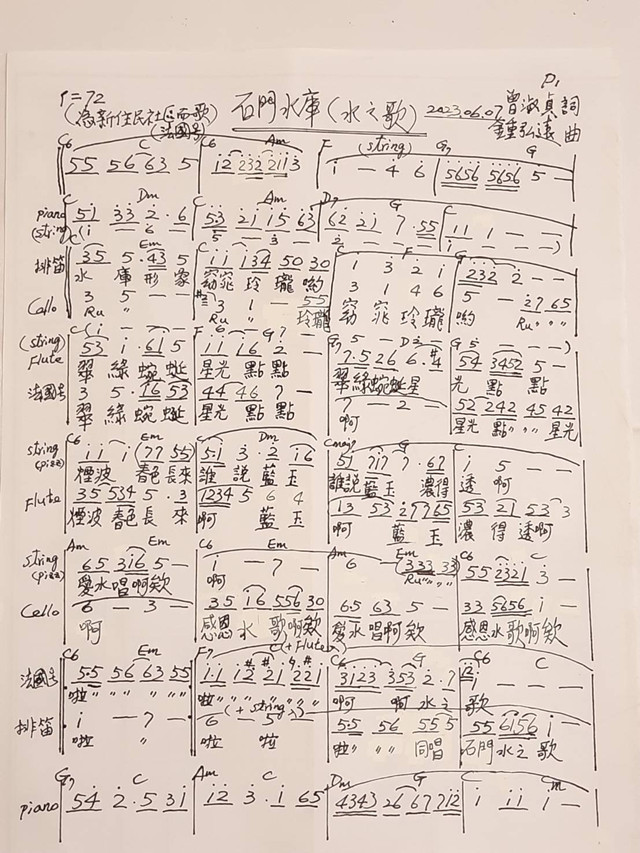 P1
r=72 石門水庫(水之歌) 2023.06.07 曾淑貞 詞
(為新住民社區而歌) 鍾弘遠 曲
(法國号)
C6 C6 Am F (string) G7 G
55 56 63 5 12 232 2113 1 — 4 6 5656 5656 5 —
C Dm C Am D7 G C
piano 51 33 2 · 6 53 21 15 63 62 21 7 · 55 11 1 —
(string) (1 — 6 — 5 — 3 — 2 — — — 1 — — —)
Em C C F G
排笛 35 5 · 43 5 11 134 50 30 1 3 2 1 232 2 — —
水 庫 形 象 窈窕 玲 瓏 喲
Cello 3 5 — — #3 3 1 — 55 3 1 4 6 5 — 27 65
Ru 〃 Ru 〃 玲瓏 窈 窕 玲 瓏 喲 Ru 〃〃
(string) C (1 — 7 — F 6 — G7 — G7 5 — D3 — G 5 — — —)
Flute 53 1 · 61 5 11 16 2 — 7·5 26 6·#4 54 3452 5 —
翠 綠 蜿 蜒 星光 點 點 翠綠蜿蜒星 光 點 點
法國号 3 5 · 16 53 44 46 7 — 7 — 2 — 52 242 45 42
翠 綠 蜿 蜒 星光 點 點 啊 星光 點〃 〃〃 星光
C6 Em C6 Dm Cmaj7 G C
string 11 1 1 (77 55) 5·1 3 · 2 16 51 717 7 · 67 1 5 — —
(pizz) 煙波 春色長來 誰 說 藍 玉 誰說 藍玉 濃得 透 啊
Flute 35 534 5 · 3 1234 5 6 4 13 53 27 765 53 21 53 3
煙波 春色 長 來 啊 藍 玉 啊 藍 玉 濃 得 透啊
Am Em C6 Em Am Em C6 C
string 65 316 5 — 1 — 7 — 6 — (333 33) 55 2321 3 —
(pizz) 愛水唱啊欸 啊 Ru〃〃〃
Cello 6 — 3 — 35 16 556 30 65 63 5 — 33 5656 1 —
啊 感恩 水 歌啊欸 愛水唱啊欸 感恩水歌啊欸
C6 Em F7 C(+Flute) C6 G C6 C
法國号 5·5 56 63 55 1·1 12 21 221 3123 353 2·7 12 — —
啦〃〃〃〃〃〃 啦〃〃〃〃〃〃 啊 啊 水之 歌
(+string)
排笛 1 — 7 — 6 — 5 — 5·5 56 55 5 55 6156 1 —
啦 〃 啦 啦 啦〃 〃〃 同唱 石門水之 歌
G7 C Am C Dm G C m
piano 54 2 · 5 31 12 3 · 1 65 4343 26 67 712 1 11 1 —